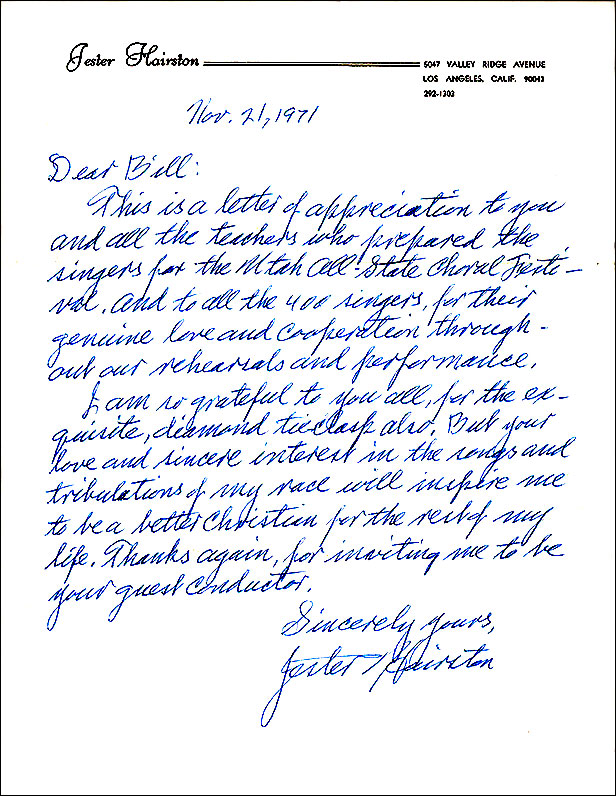 Jester Hairston
5047 VALLEY RIDGE AVENUE
LOS ANGELES, CALIF. 90043
292-1202
Nov. 21, 1971
Dear Bill:
This is a letter of appreciation to you
and all the teachers who prepared the
singers for the Utah All-State Choral Festi-
val. And to all the 400 singers, for their
genuine love and cooperation through-
out our rehearsals and performance.
I am so grateful to you all, for the ex-
quisite, diamond tie clasp also. But your
love and sincere interest in the songs and
tribulations of my race will inspire me
to be a better Christian for the rest of my
life. Thanks again, for inviting me to be
your guest conductor.
Sincerely yours,
Jester Hairston